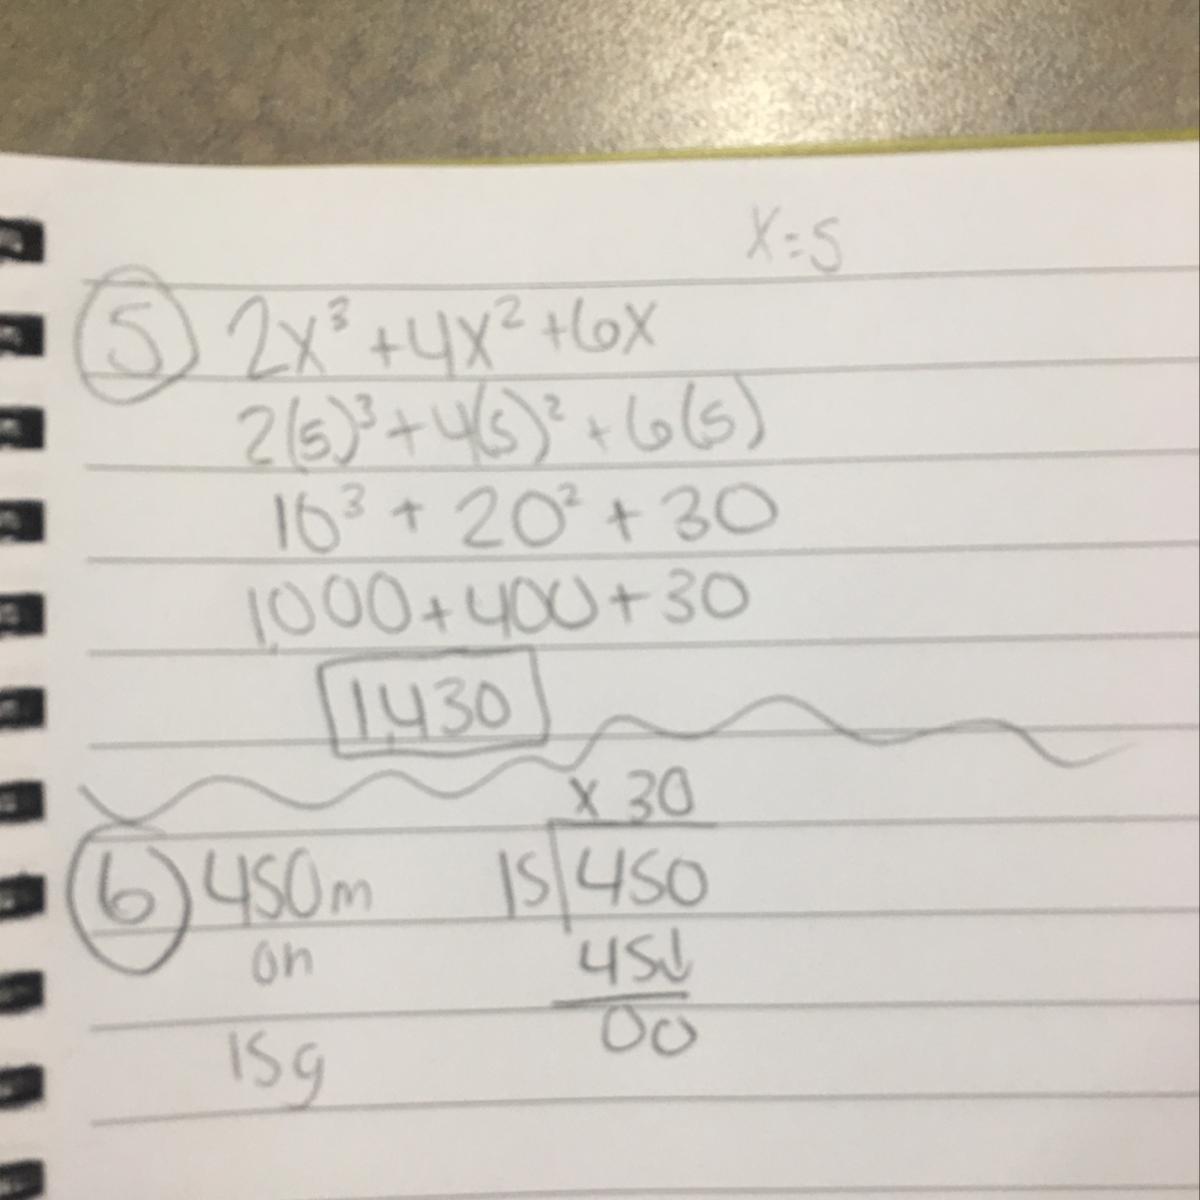 x=5
5 2x³ +4x² +6x
2(5)³ + 4(5)² + 6(5)
10³ + 20² + 30
1,000+400+30
1,430
x 30
6 450m 15 450
on 45↓
15g 00